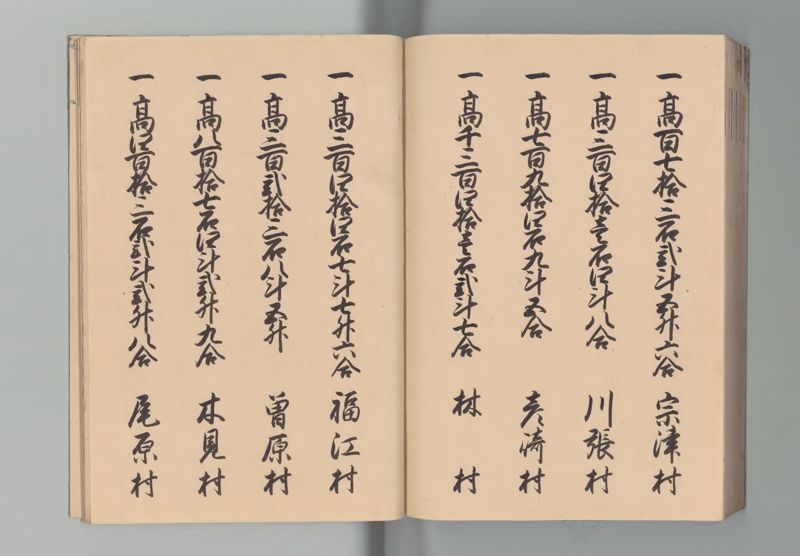 一高百七拾三石弐斗五升六合 宗津村
一高三百四拾壱石四斗八合 川張村
一高七百九拾四石九斗五合 彦崎村
一高千三百四拾壱石弐斗七合 林村
一高三百四拾四石七斗七升六合 福江村
一高三百弐拾三石八斗五升 曽原村
一高八百拾七石四斗弐升九合 木見村
一高四百拾三石弐斗弐升八合 尾原村